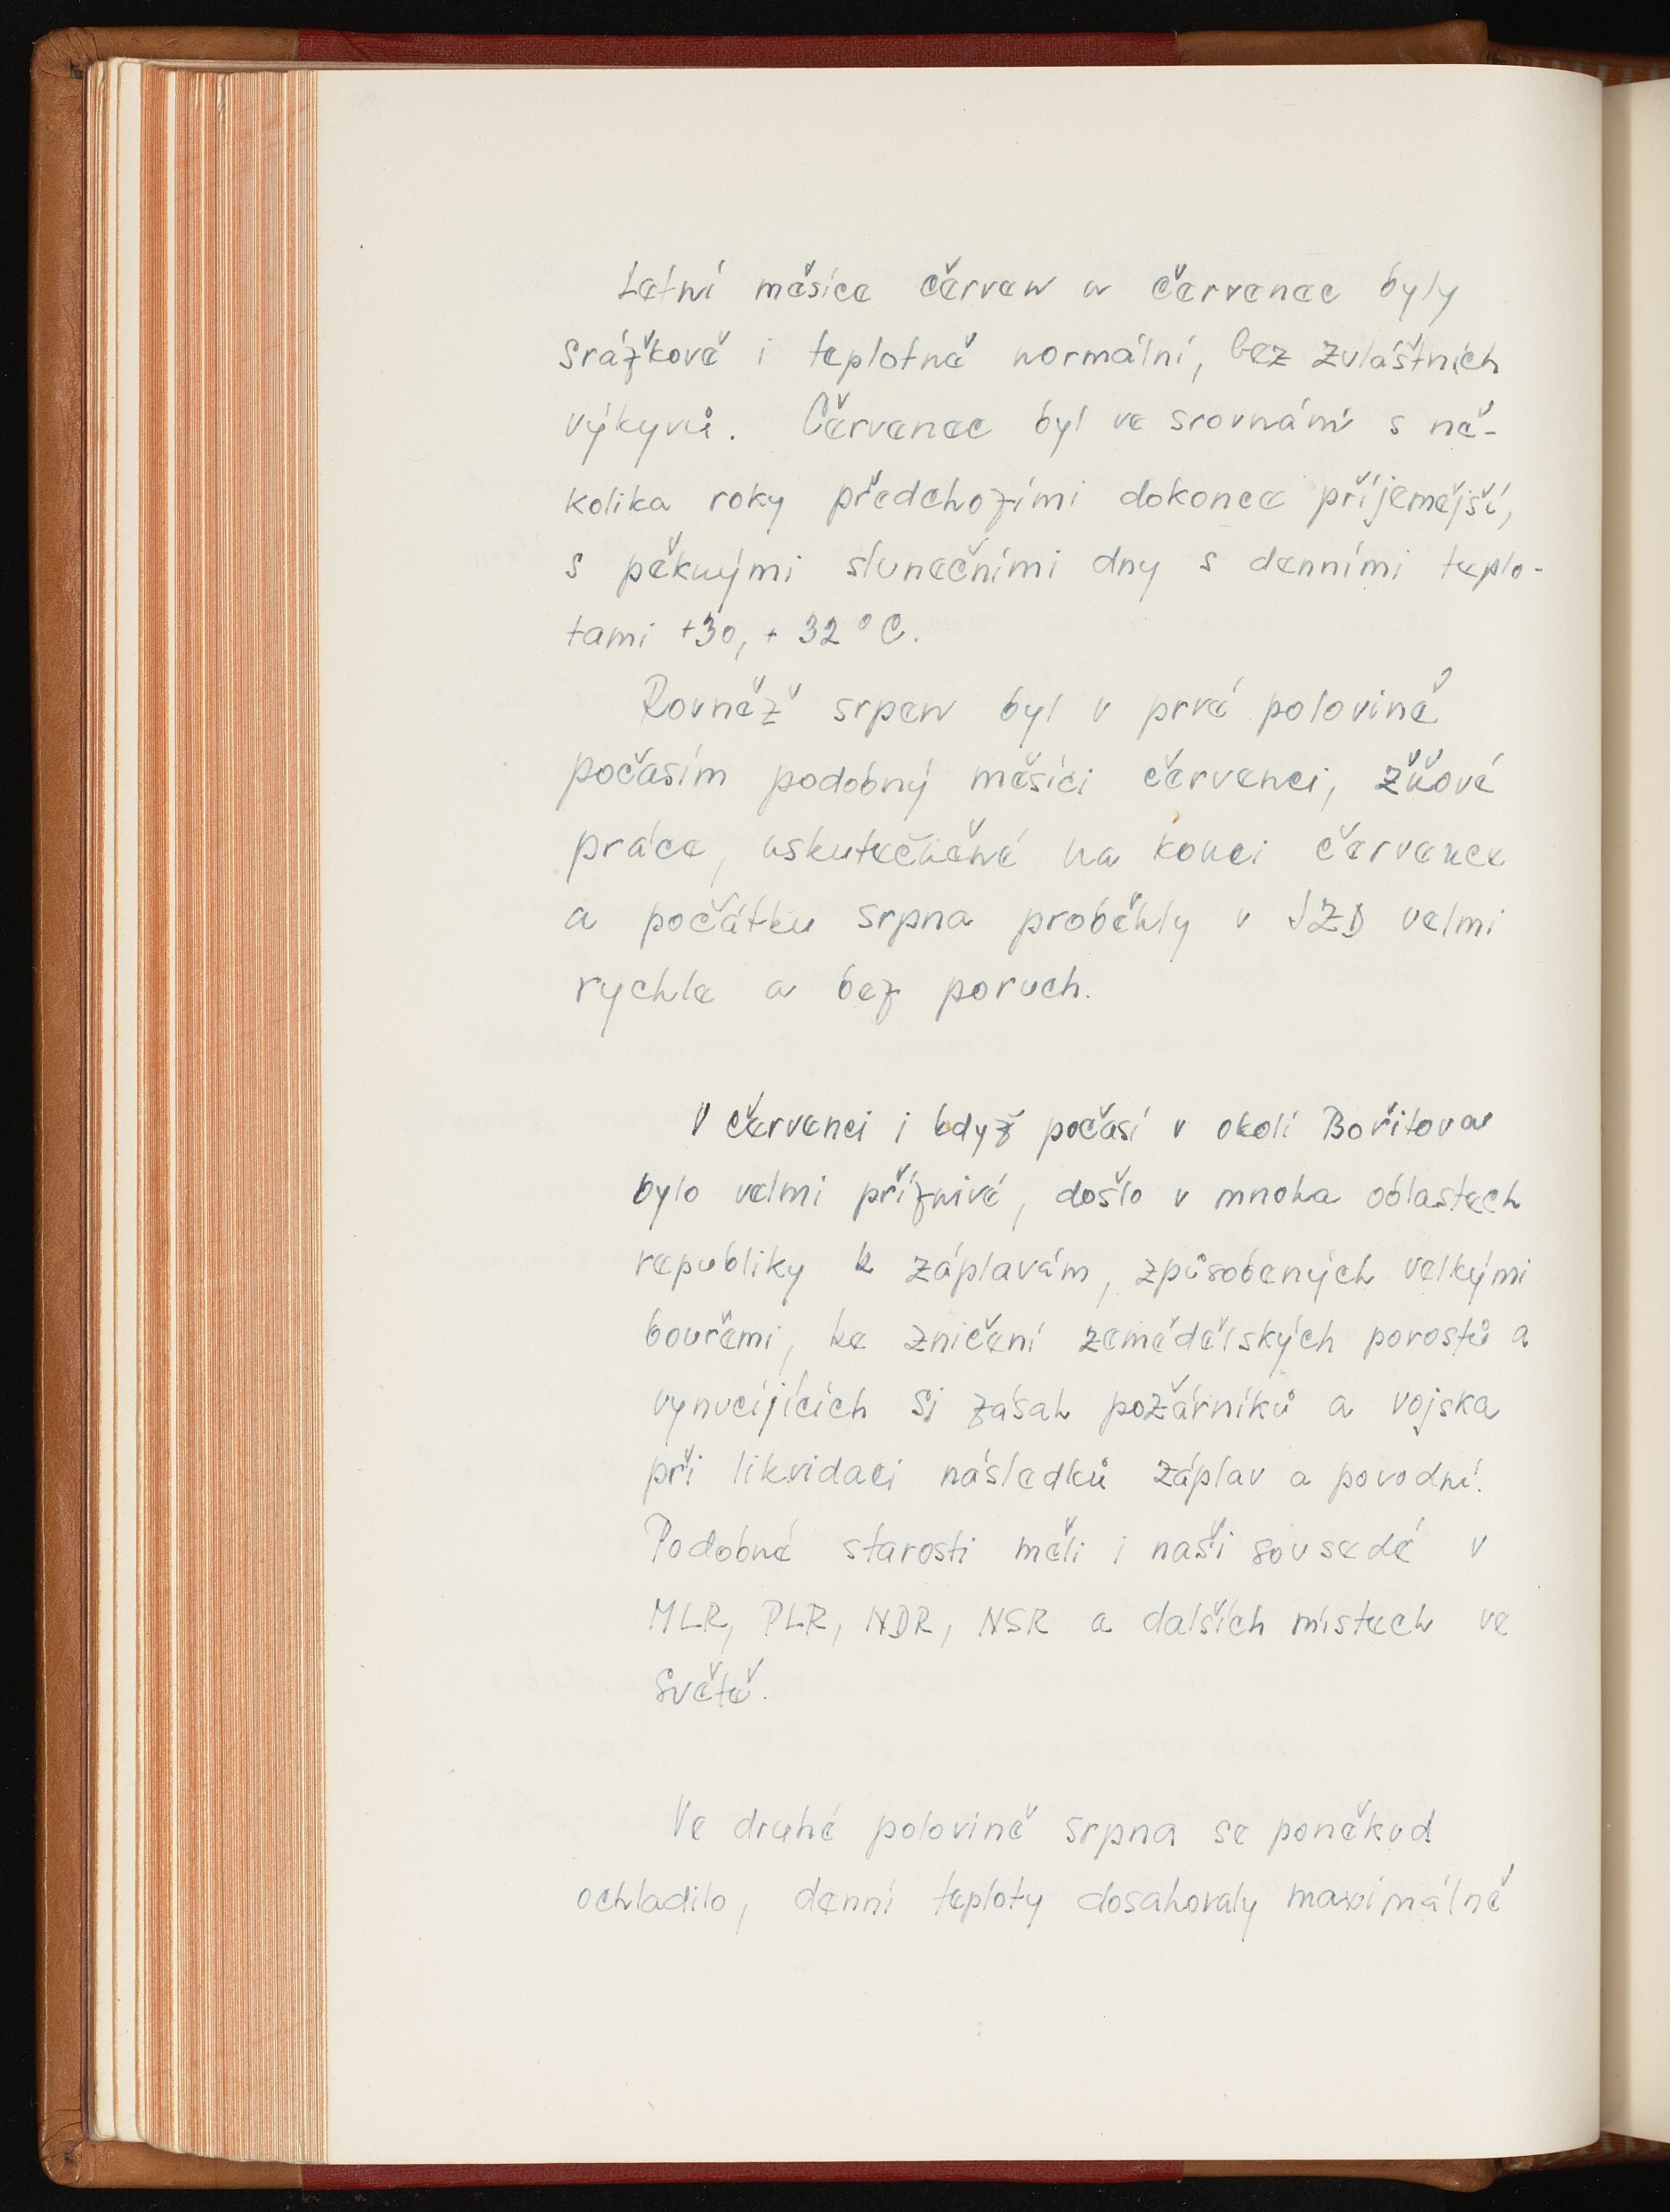 Letní měsíce červen a červenec byly
srážkově i teplotně normální, bez zvláštních
výkyvů. Červenec byl ve srovnání s ně-
kolika roky předchozími dokonce příjemější,
s pěknými slunečními dny s denními teplo-
tami +30, + 32 °C.
Rovněž srpen byl v prvé polovině
počasím podobný měsíci červenci, žňové
práce, uskutečněné na konci července
a počátku srpna proběhly v JZD velmi
rychle a bez poruch.
V červenci i když počasí v okolí Bořitova
bylo velmi příznivé, došlo v mnoha oblastech
republiky k záplavám, způsobených velkými
bouřemi, ke zničení zemědělských porostů a
vynucijících si zásah požárníků a vojska
při likvidaci následků záplav a povodní.
Podobné starosti měli i naši sousedé v
MLR, PLR, NDR, NSR a dalších místech ve
světě.
Ve druhé polovině srpna se poněkud
ochladilo, denní teploty dosahovaly maximálně